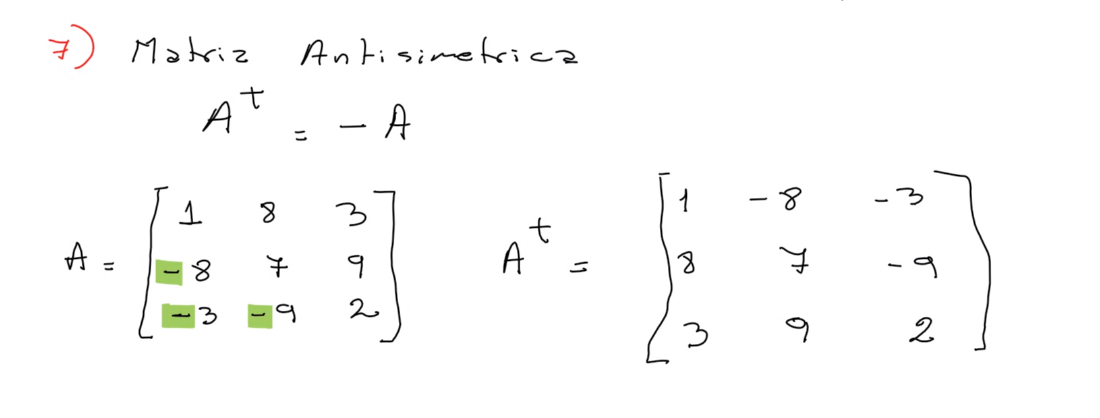 7) Matriz Antisimetrica
A^t = - A
A = [ 1 8 3 ; -8 7 9 ; -3 -9 2 ] A^t = [ 1 -8 -3 ; 8 7 -9 ; 3 9 2 ]